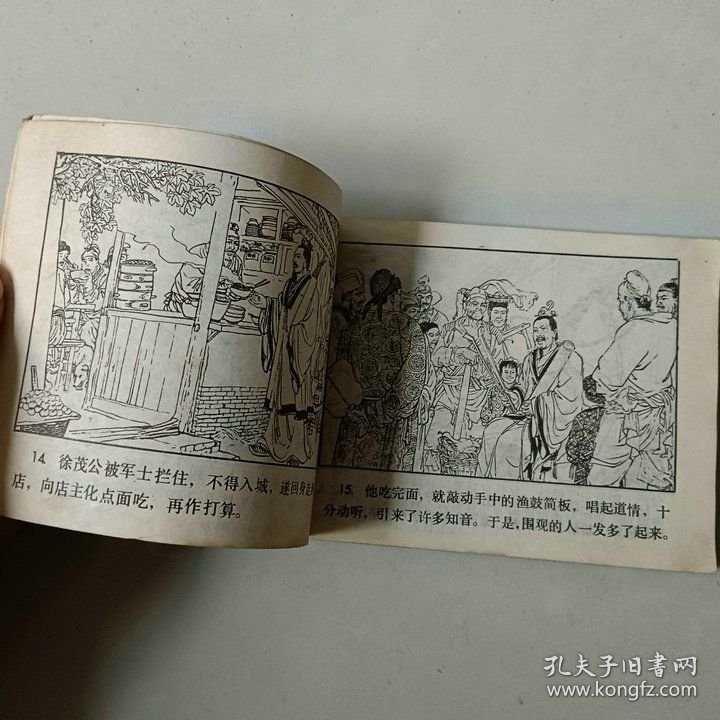 14. 徐茂公被军士拦住，不得入城，遂回身走
店，向店主化点面吃，再作打算。
15. 他吃完面，就敲动手中的渔鼓简板，唱起道情，十
分动听，引来了许多知音。于是，围观的人一发多了起来。
孔夫子旧書网
www.kongfz.com